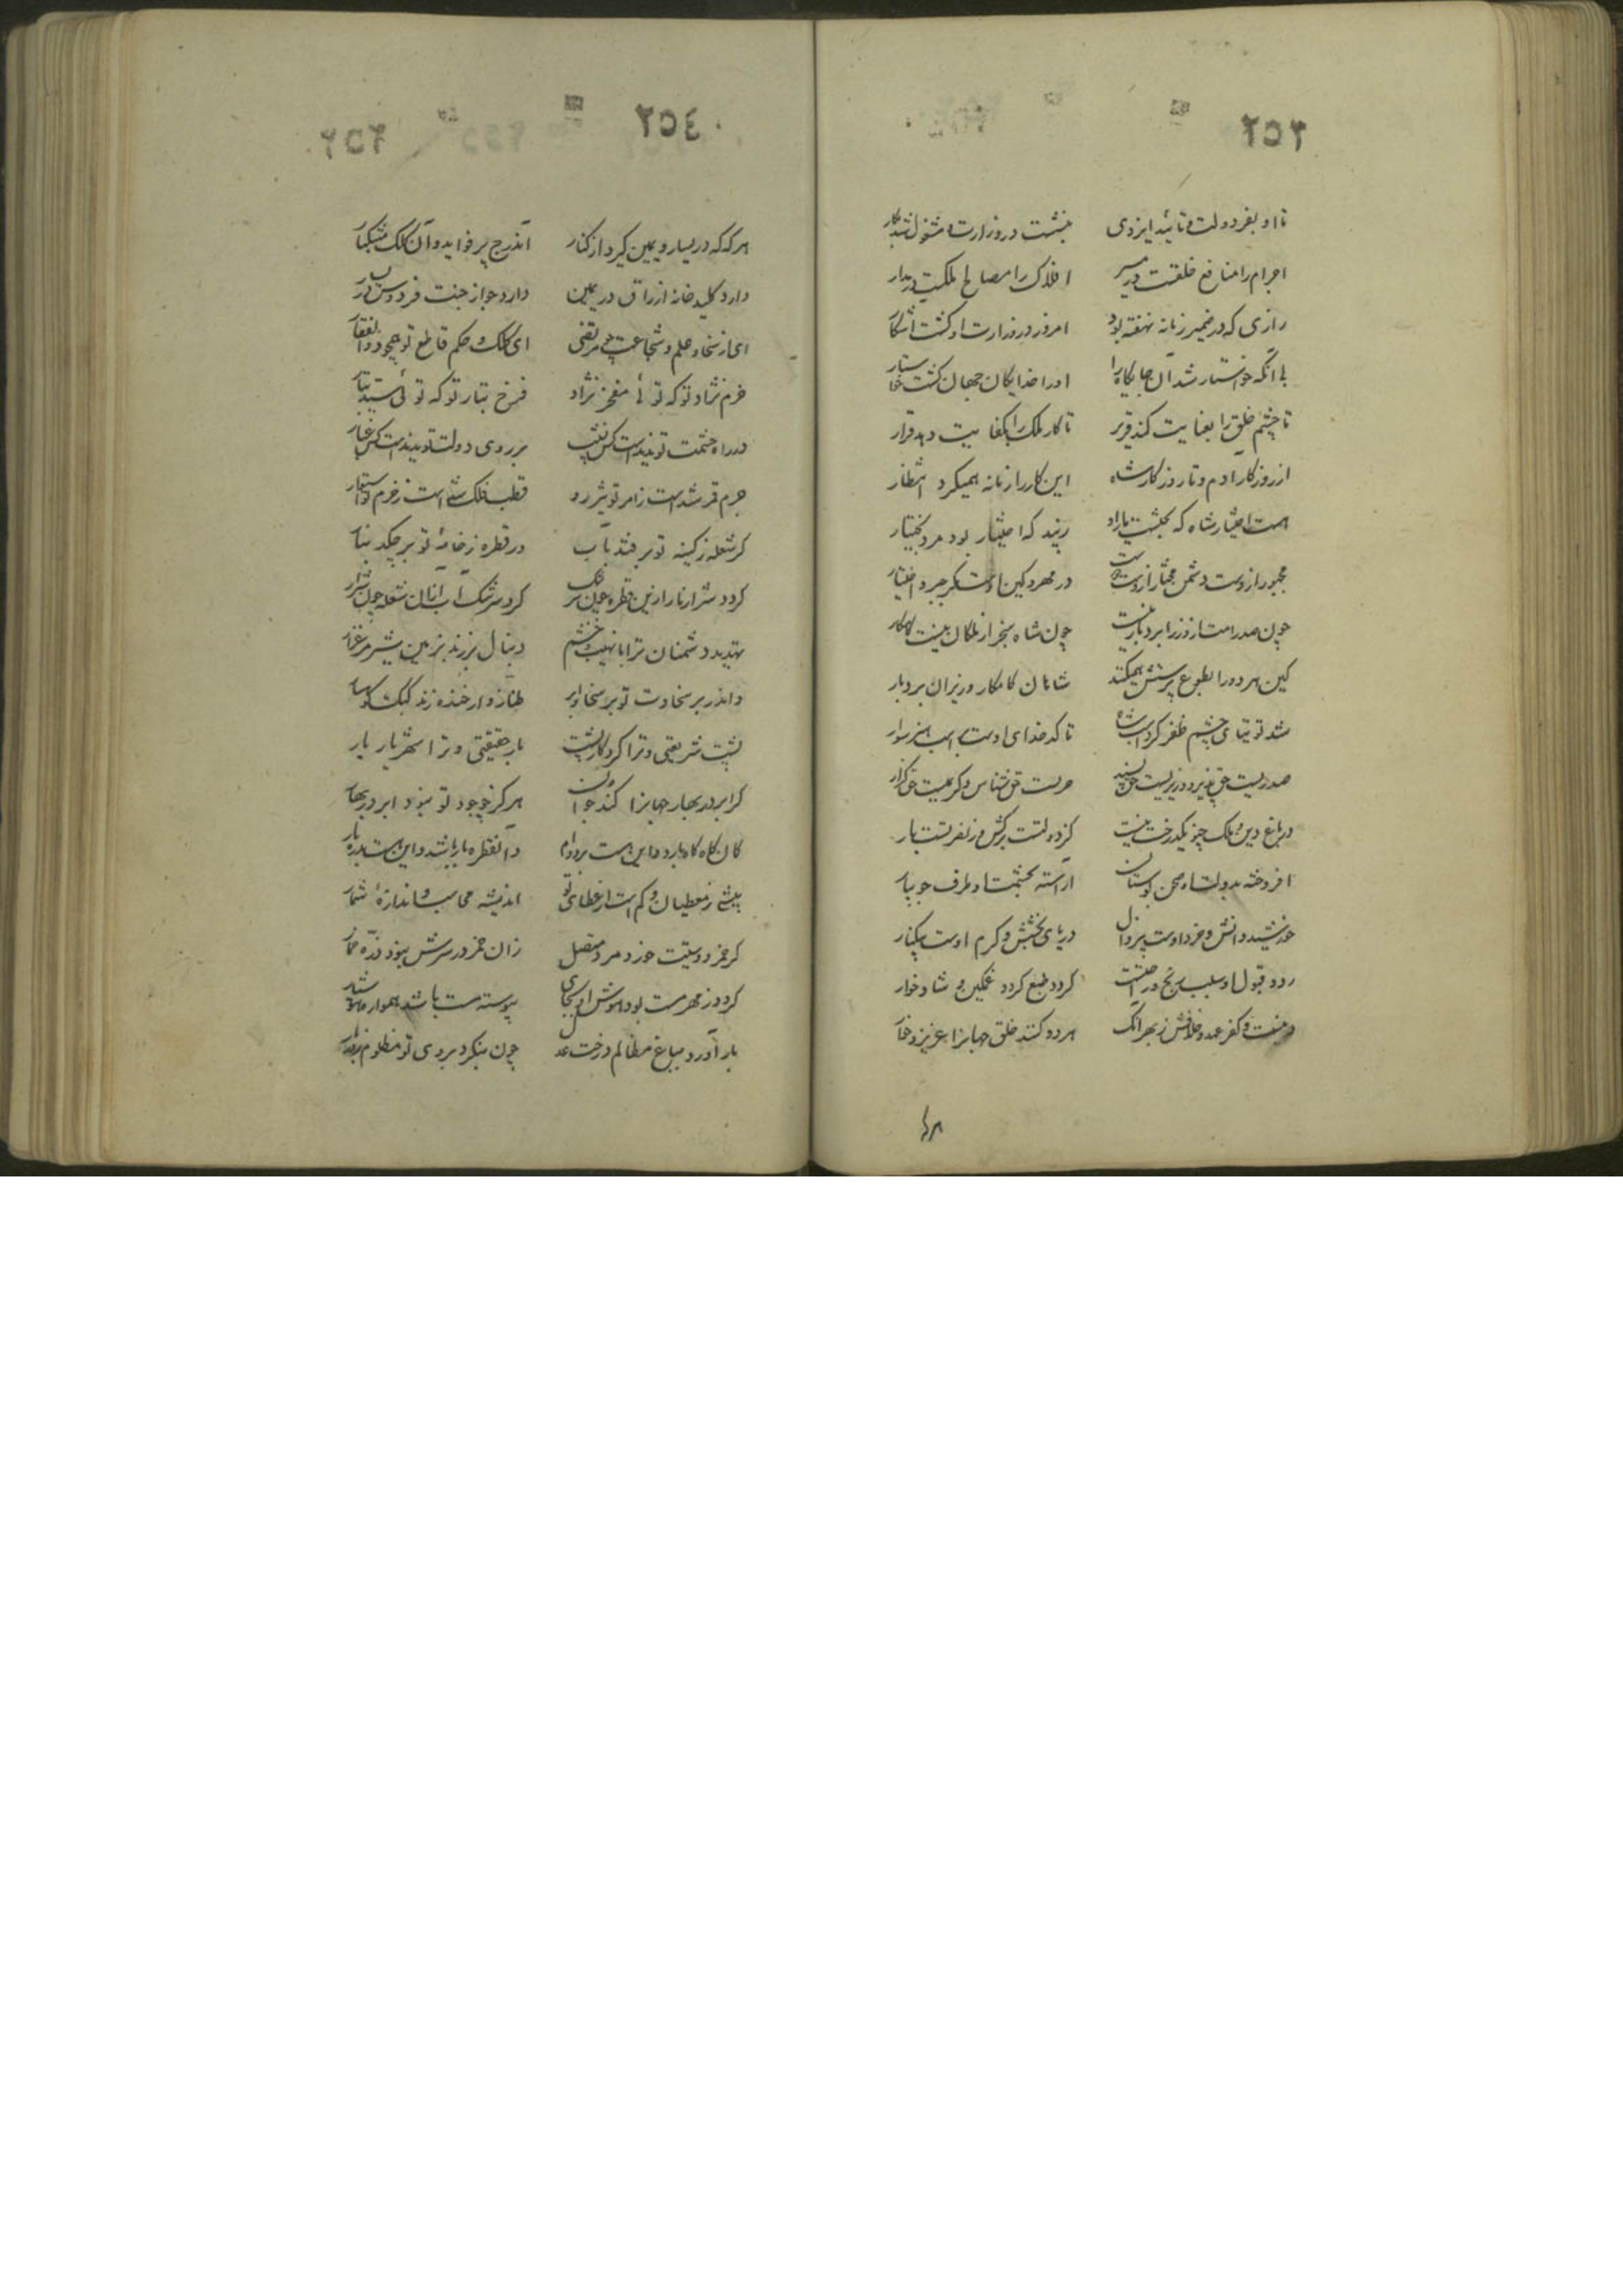 ۲۵۳
تا او بفر دولت و تائید ایزدی بنشست در وزارت و مشغول شد بکار
اجرام را منافع خلقست در مسیر افلاک را مصالح ملکست در مدار
رازی که در ضمیر زمانه نهفته بود امروز در وزارت او کشت آشکار
با آنکه خواستار شد آن جایکاه را او را خدایکان جهان کشت خواستار
تا چشم خلق را بعنایت کند قریر تا کار ملک را بکفایت دهد قرار
از روزکار آدم و تا روزکار شاه این کار را زمانه همیکرد انتظار
هست اختیار شاه که بخشست یار او زیبد که اختیار بود مرد بختیار
مجبور ازوست دشمن و مختار ازوست دوست در مهر و کین اوست مکر جبر و اختیار
چون صدر امت از وزرا بردبار نیست چون شاه سنجر از ملکان نیست کامکار
کین هر دو را بطوع پرستش همیکنند شاهان کامکار و وزیران بردبار
شد توتیای چشم ظفر کرد اسب شاه تا کدخدای اوست بر اسب هنر سوار
صدریست حق پذیر و وزیریست حق پسند حریست حق شناس و کریمیست حق کزار
در باغ دین و ملک چنو یکدرخت نیست کز دولتست برکش و ز نصرتست بار
افروخته بدولت او صحن بوستان آراسته بحشمت او طرف جویبار
خورشید دانش و خرد اوست بی زوال دریای بخشش و کرم اوست بیکنار
رد و قبول او سبب رنج و راحتست کردد طبع کردد غمکین و شادخوار
در منت و کفر عهد و خلافش ز بهر آنک هر دو کنند خلق جهانرا عزیز و خوار
هر
۲۵٤
هر که که در یسار و یمین کیرد از کنار آندرج پر فواید و آن کلک مشکبار
دارد کلید خانه ارزاق در یمین دارد جواز جنت فردوس در یسار
ای از سخا و علم و شجاعت چو مرتضی ای کلک و حکم قاطع تو همچو ذوالفقار
خرم نژاد تو که توئی مفخر نژاد فرخ تبار تو که توئی سید تبار
در راه حشمت تو ندیدست کس نشیب بر روی دولت تو ندیدست کس غبار
جرم قمر شدست ز امر تو تیزرو قطب فلک شدست ز عزم تو استوار
کر شعله ز کینه تو بر فتد بآب ور قطره ز خامه تو بر چکد بنار
کردد شرار نار ازین قطره چون سرشک کردد سرشک آب از آن شعله چون شرار
تهدید دشمنان ترا با نهیب و خشم دنبال بر زند بزمین شیر مرغزار
واندر بر سخاوت تو بر سخای ابر طنازوار خنده زند کبک کوهسار
پشت شریعتی و ترا کردکار پشت یار حقیقتی و ترا شهریار یار
کر ابر در بهار جهانرا کند جوان هرکز چو جود تو نبود ابر در بهار
کان کاه کاه بارد و این هست بر دوام وآن قطره بار باشد و این هست بدره بار
بیشی ز معطیان و کم است از عطای تو اندیشه محاسب و اندازه شمار
کر خمر دوستیت خورد مرد متصل زان خمر در سرش نبود ذره خمار
کردد ز مهر مست بود هوش او بجای پیوسته مست باشد و همواره هوشیار
بار آورد بباغ مظالم درخت عدل چون بنکرد بروی تو مظلوم